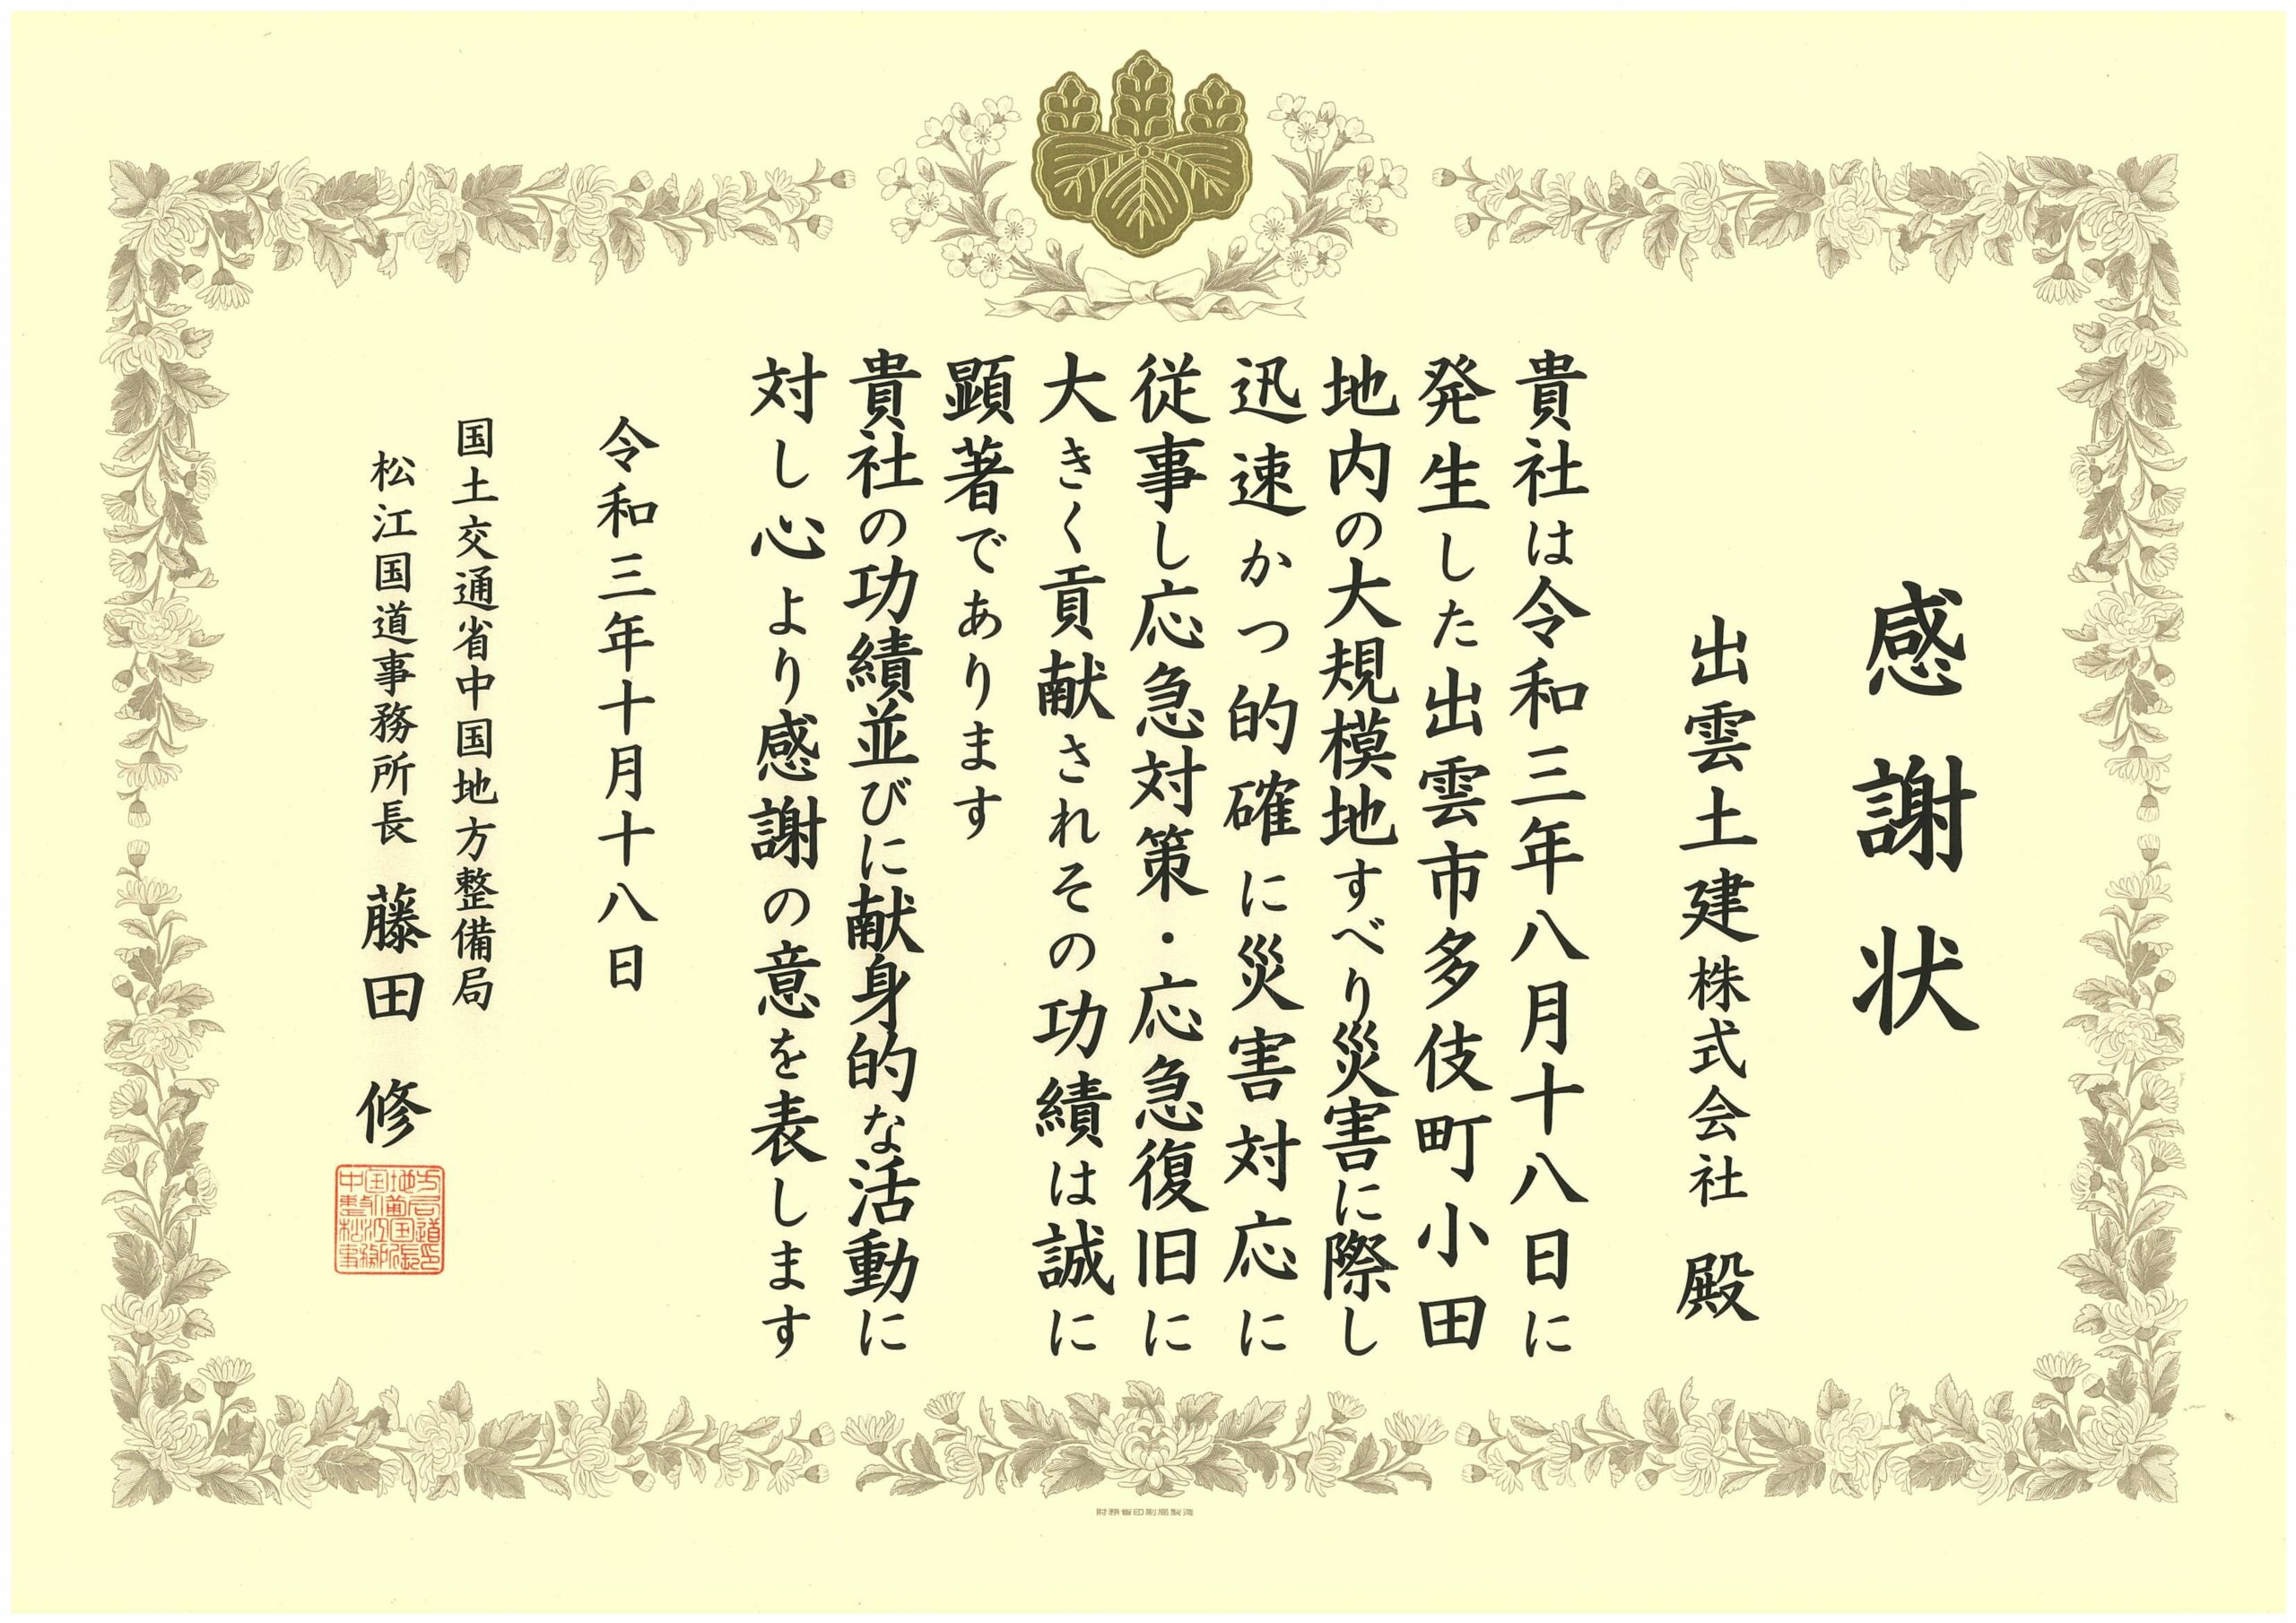 感謝状
出雲土建株式会社 殿
貴社は令和三年八月十八日に
発生した出雲市多伎町小田
地内の大規模地すべり災害に際し
迅速かつ的確に災害対応に
従事し応急対策・応急復旧に
大きく貢献されその功績は誠に
顕著であります
貴社の功績並びに献身的な活動に
対し心より感謝の意を表します
令和三年十月十八日
国土交通省中国地方整備局
松江国道事務所長 藤田 修
中国地方
整備局
松江国道
事務所長印
財務省印刷局製造